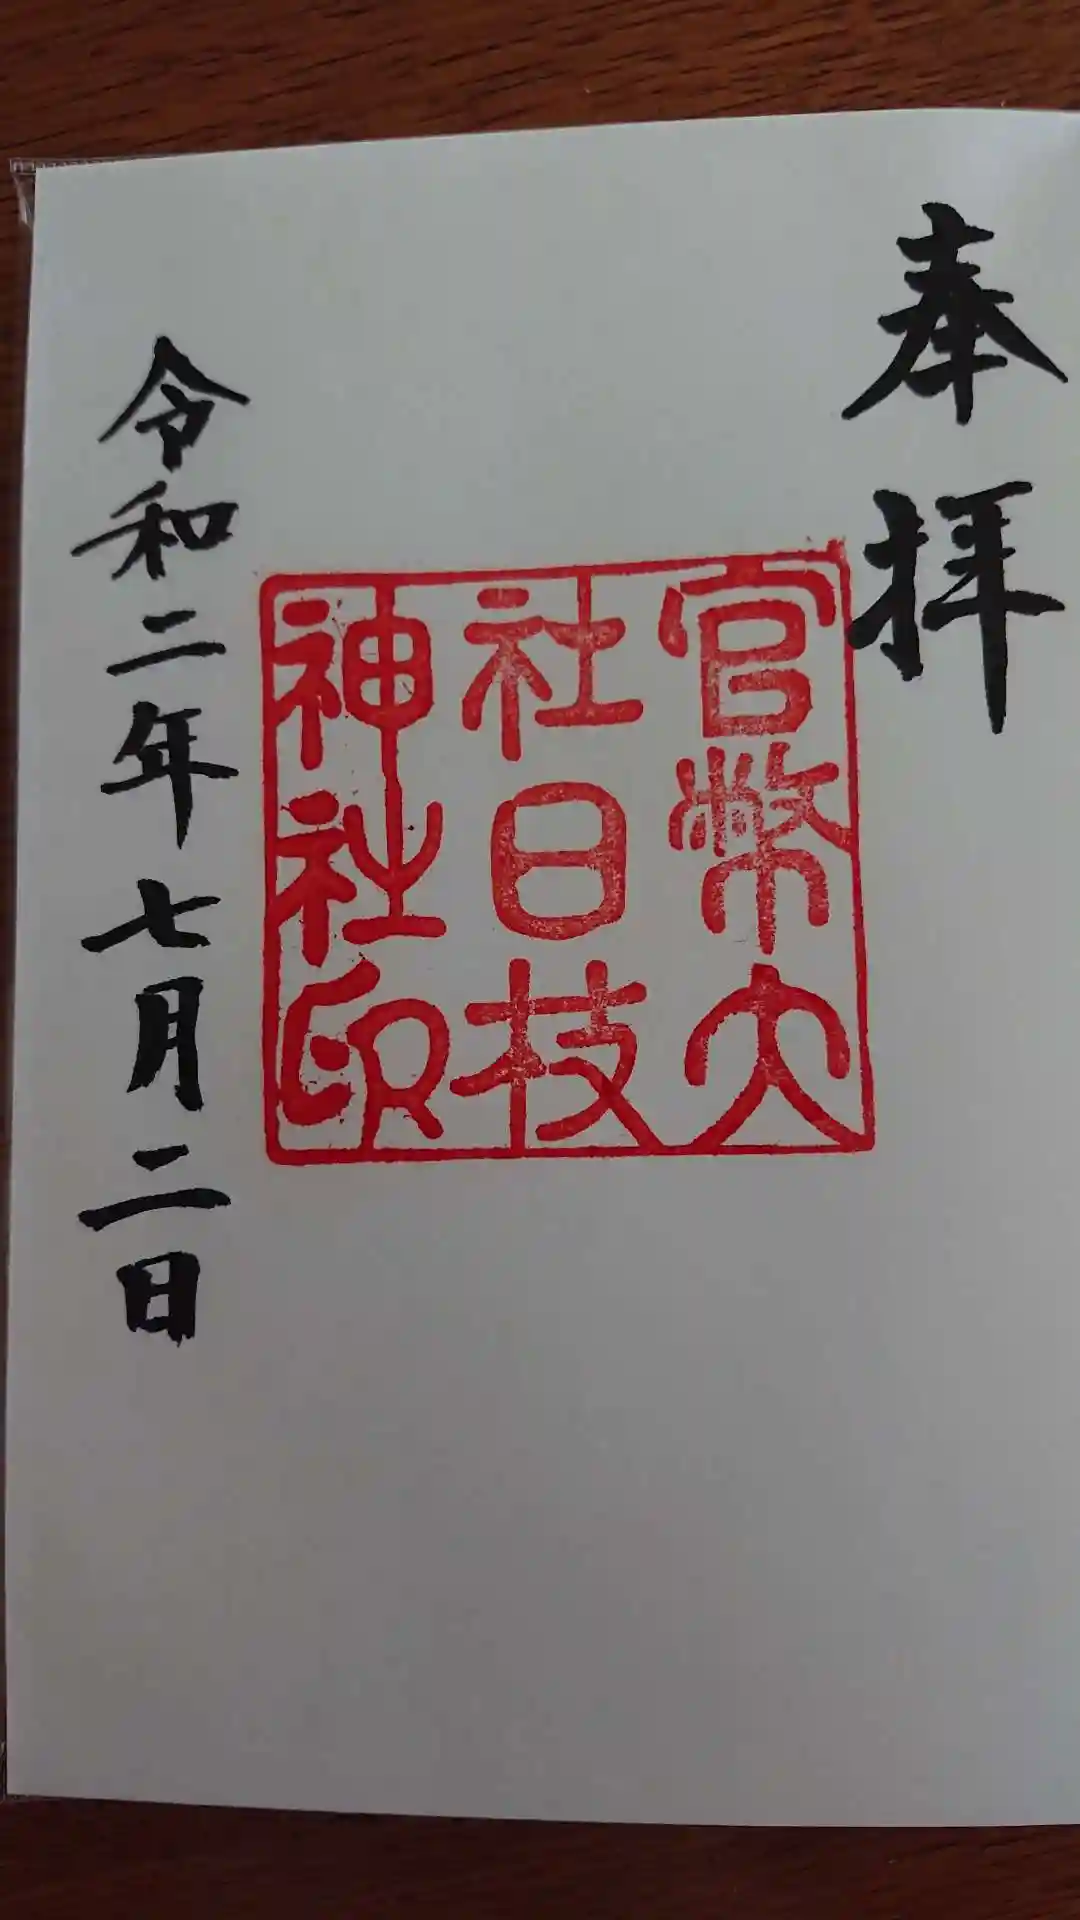 奉拝
官幣大
社日技
神社印
令和二年七月二日